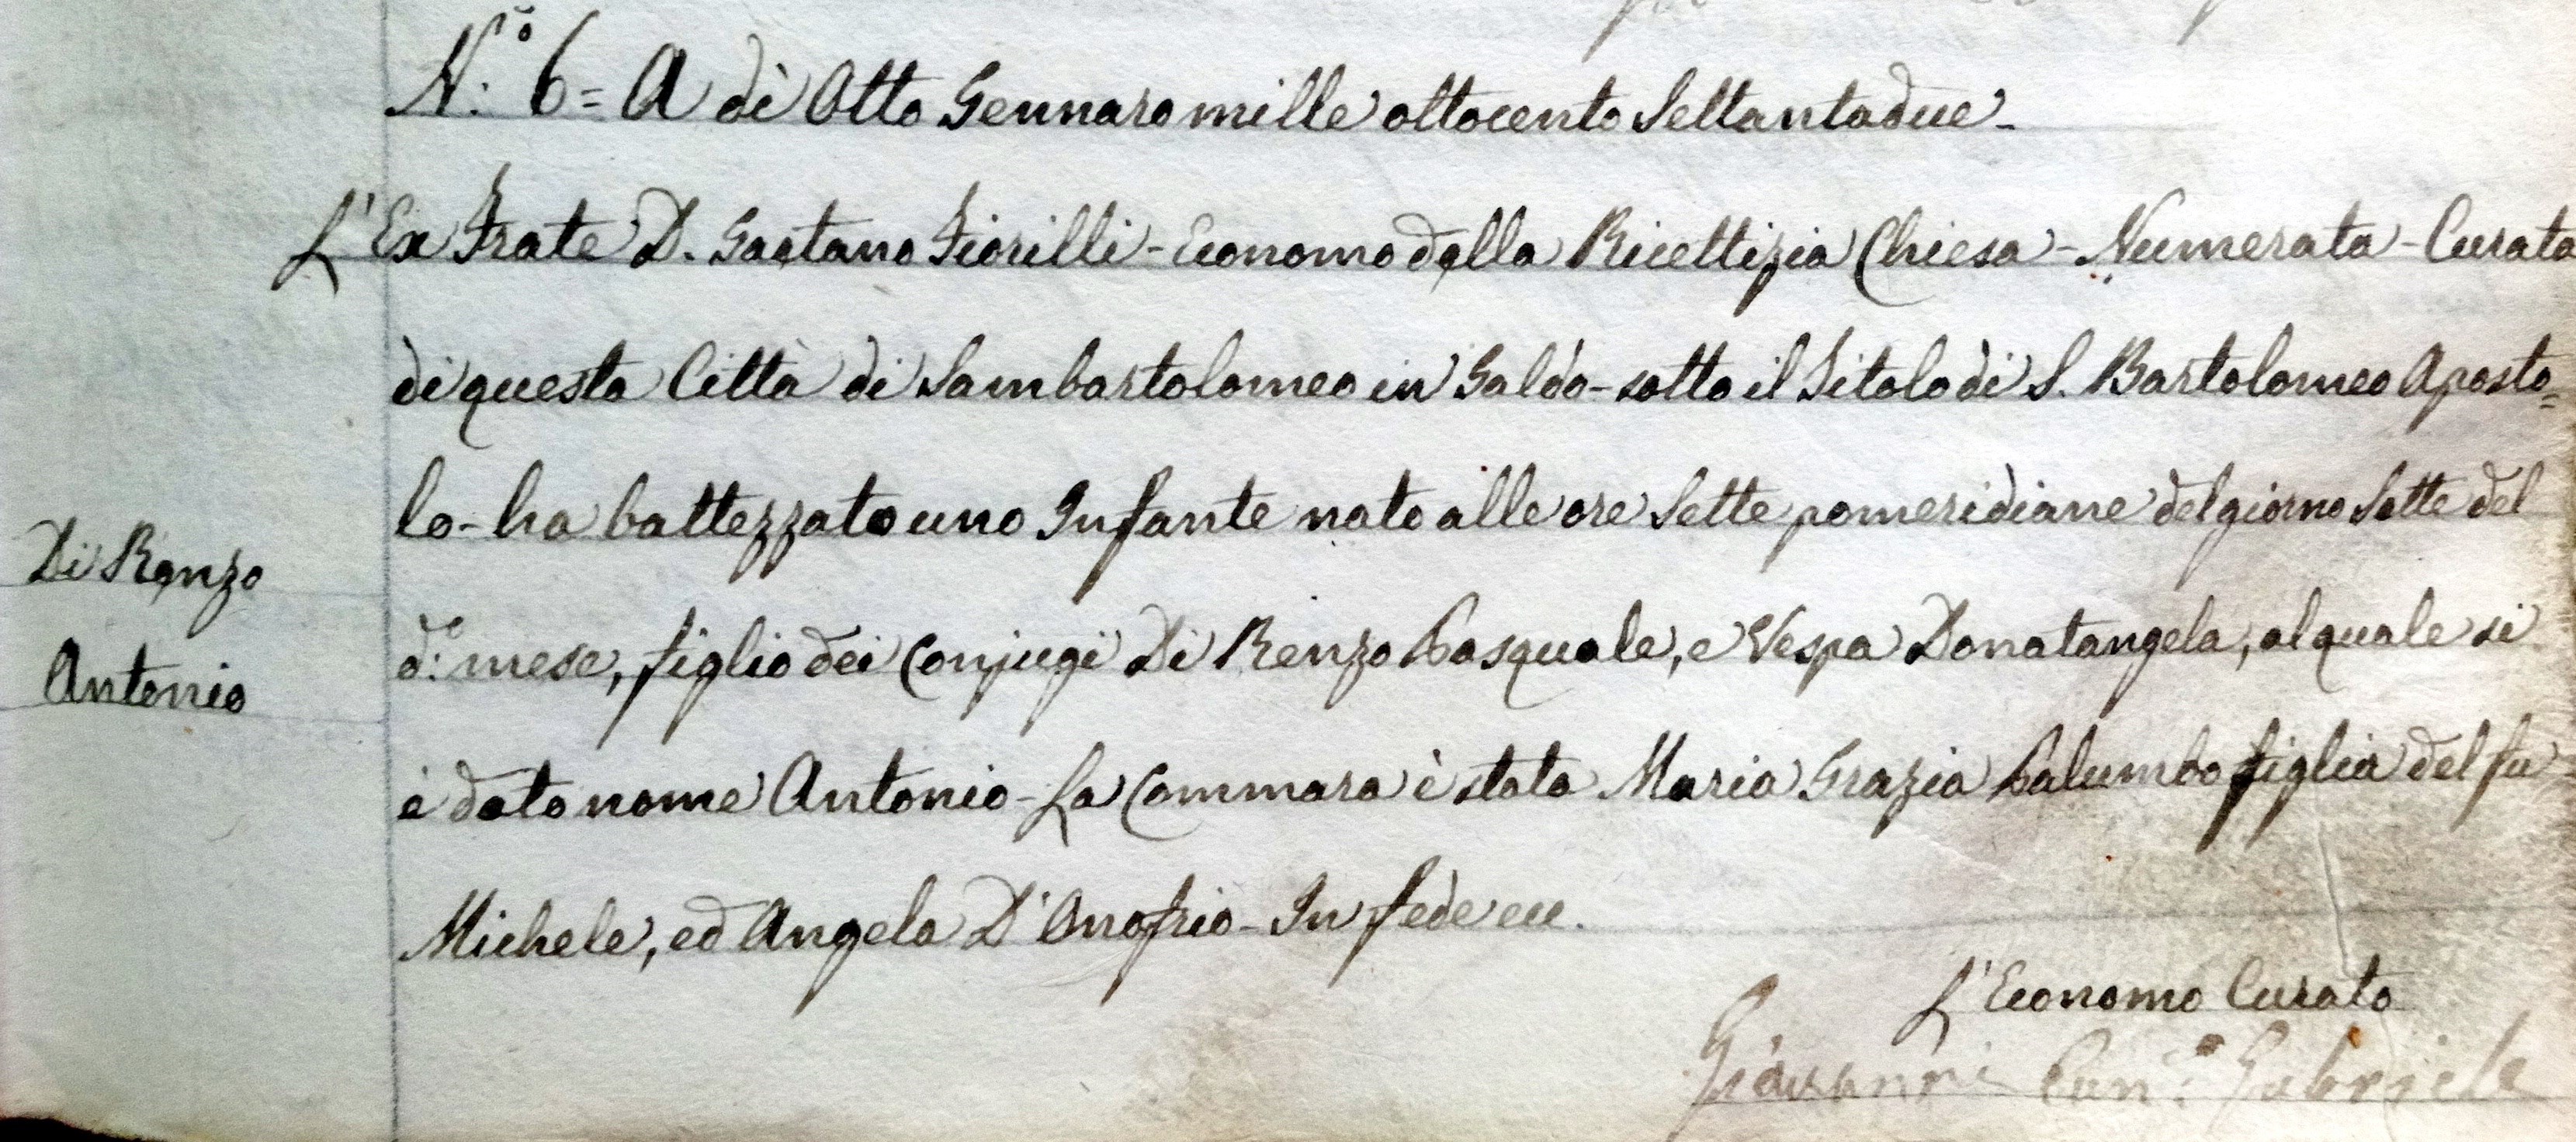 N.º 6= A dì Otto Gennaro mille ottocento Settantadue-
L'Ex Frate D. Gaetano Fiorilli - Economo della Ricettizia Chiesa - Numerata - Curata
di questa Città di Sambartolomeo in Galdo - sotto il Titolo di S. Bartolomeo Aposto=
lo - ha battezzato uno Infante nato alle ore Sette pomeridiane del giorno Sette del
Di Renzo
d:º mese, figlio dei Conjugi Di Renzo Pasquale, e Vespa Donatangela, al quale si
Antonio
è dato nome Antonio - La Commara è stata Maria Grazia Palumbo figlia del fu
Michele, ed Angela D'Onofrio - In fede ecc.
L'Economo Curato
Giovanni Can.º Gabriele